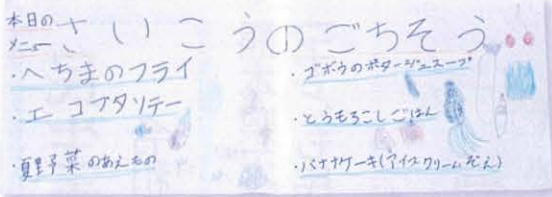 本日の
メニュー
さいこうのごちそう
・へちまのフライ
・エコブタソテー
・夏野菜のあえもの
・ゴボウのポタージュスープ
・とうもろこしごはん
・バナナケーキ(アイスクリームぞえ)